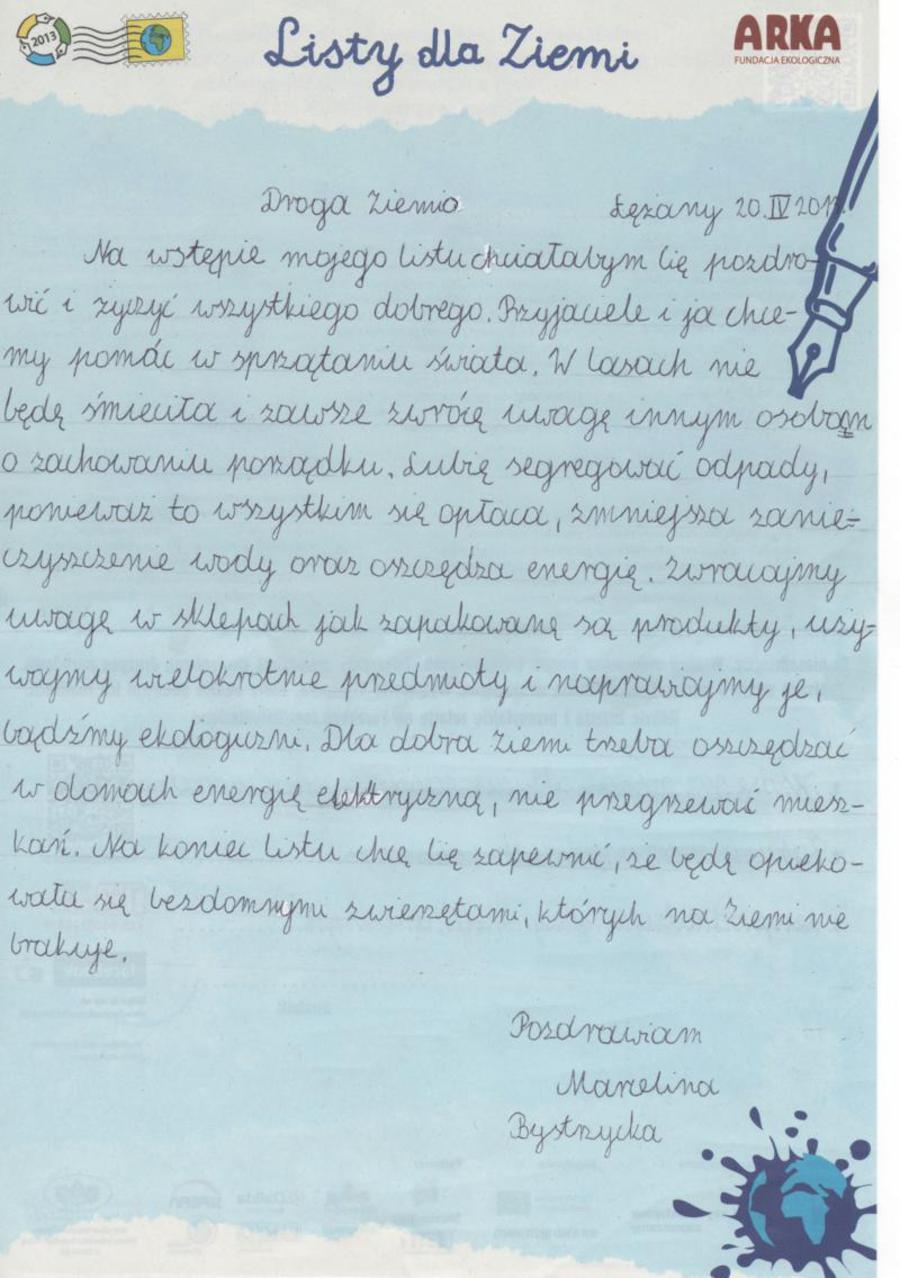 2013
Listy dla Ziemi
ARKA
FUNDACJA EKOLOGICZNA
Droga Ziemio
Łężany 20.IV 2013.
Na wstępie mojego listu chciałabym Cię pozdro-
wić i życzyć wszystkiego dobrego. Przyjaciele i ja chce-
my pomóc w sprzątaniu świata. W lasach nie
będę śmieciła i zawsze zwrócę uwagę innym osobom
o zachowaniu porządku. Lubię segregować odpady,
ponieważ to wszystkim się opłaca, zmniejsza zanie-
czyszczenie wody oraz oszczędza energię. Zwracajmy
uwagę w sklepach jak zapakowane są produkty, uży-
wajmy wielokrotnie przedmioty i naprawiajmy je,
bądźmy ekologiczni. Dla dobra Ziemi trzeba oszczędzać
w domach energię elektryczną, nie przegrzewać miesz-
kań. Na koniec listu chcę Cię zapewnić, że będę opieko-
wała się bezdomnymi zwierzętami, których na Ziemi nie
brakuje.
Pozdrawiam
Marcelina
Bystrzycka